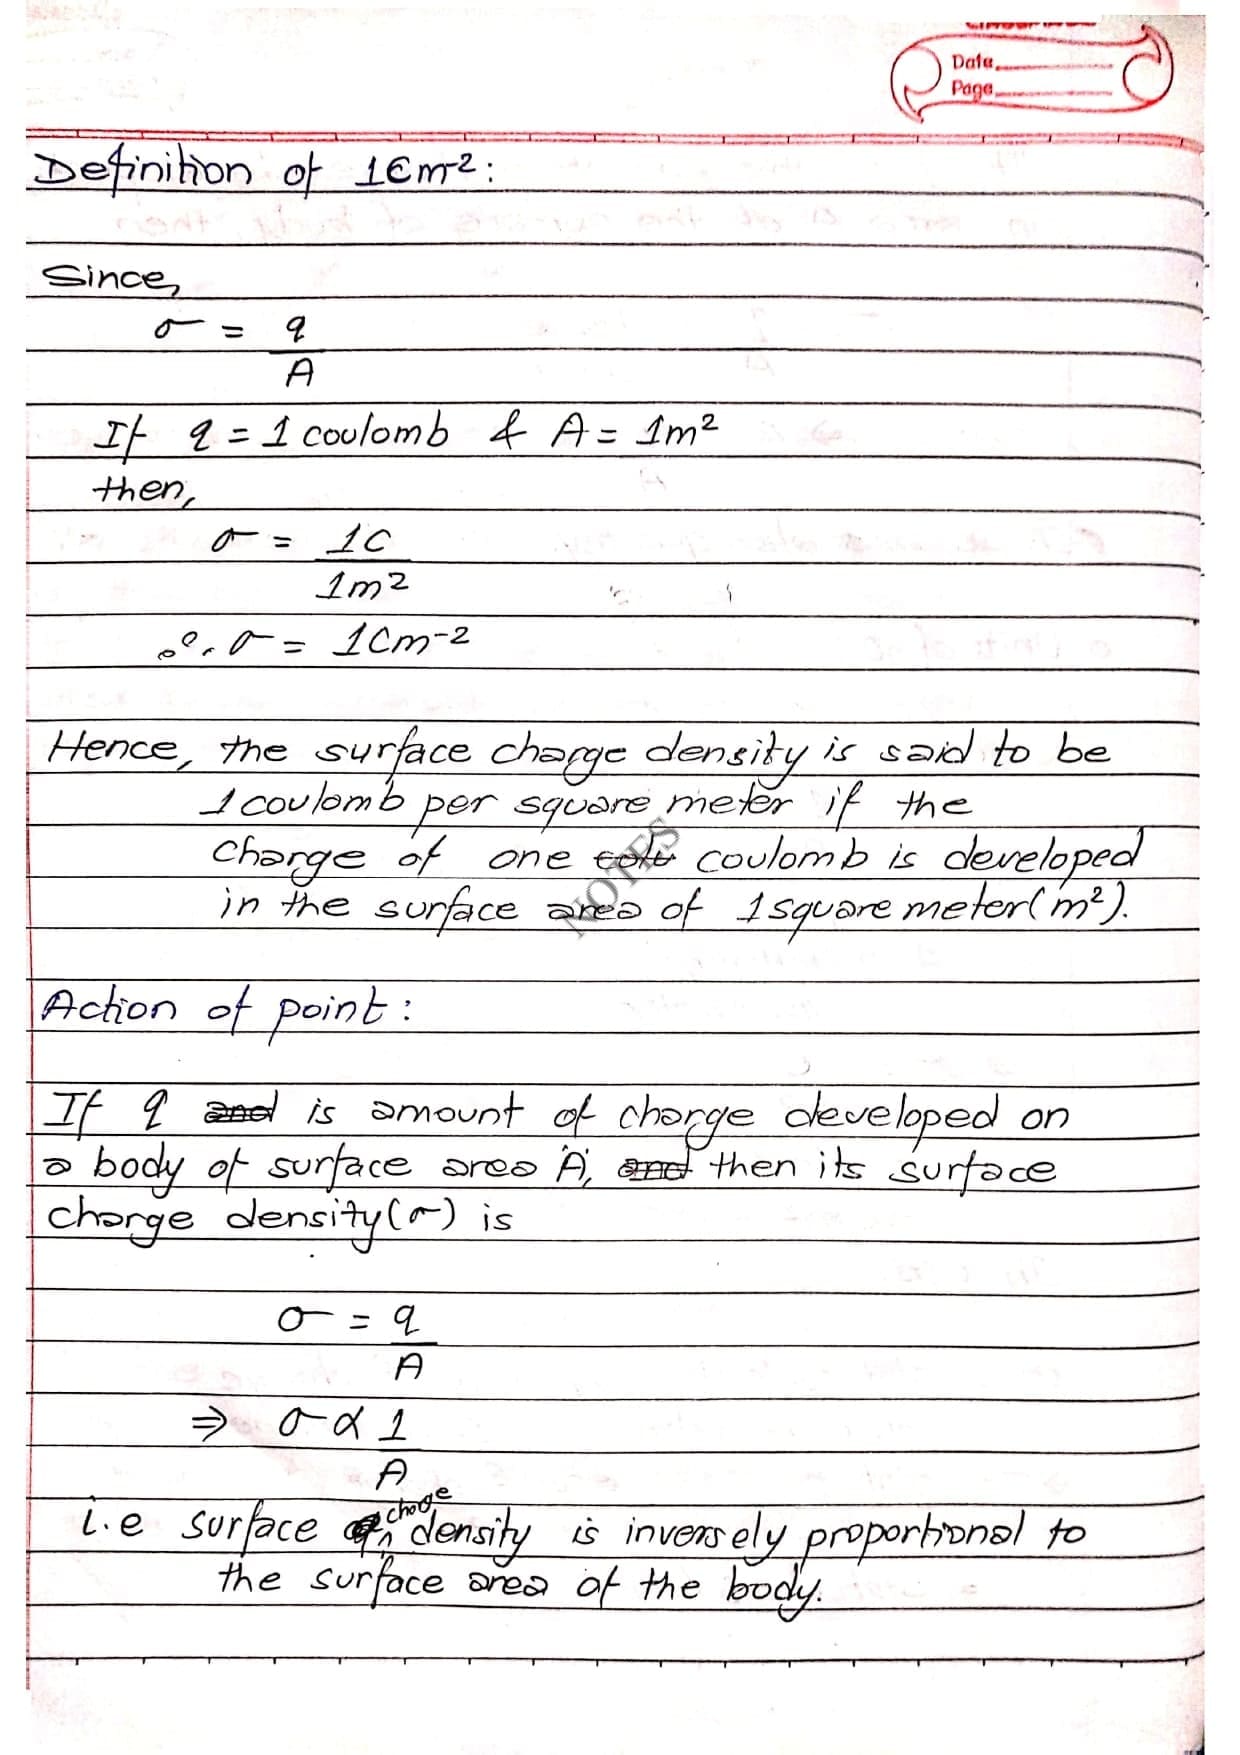 Date
Page
Definition of 1Cm-2:
Since,
σ = q
A
If q = 1 coulomb & A = 1m²
then,
σ = 1C
1m²
∴ σ = 1Cm-2
Hence, the surface charge density is said to be
1 coulomb per square meter if the
charge of one coulomb is developed
in the surface area of 1 square meter (m²).
NOTES
Action of point:
If q and is amount of charge developed on
a body of surface area 'A', and then its surface
charge density (σ) is
σ = q
A
⇒ σ ∝ 1
A
i.e surface charge density is inversely proportional to
the surface area of the body.